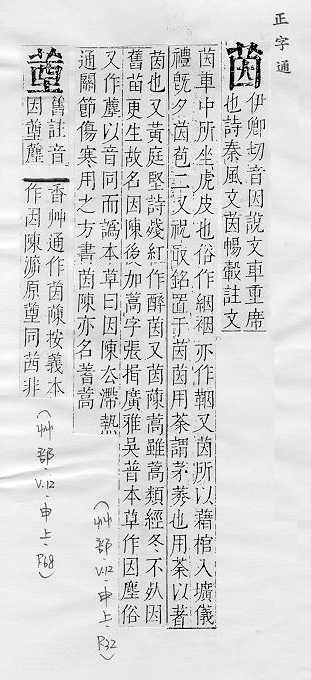 正字通
茵
伊卿切音因說文車重席
也詩秦風文茵暢轂註文
茵車中所坐虎皮也俗作絪裀亦作鞇又茵所以藉棺入壙儀
禮旣夕茵苞二又祝取銘置于茵茵用荼謂茅莠也用荼以著
茵也又黃庭堅詩殘紅作醉茵又茵蔯蒿雖蒿類經冬不死因
舊苗更生故名因陳後加蒿字張揖廣雅吳普本草作因塵俗
又作以音同而譌本草曰因陳去滯熱
通關節傷寒用之方書茵陳亦名蓍蒿
(艸部 V.12·申上· P.32)
舊註音
因
香艸通作茵蔯按義本
作因陳溯原同茜非
(艸部 V.12·申上· P.68)